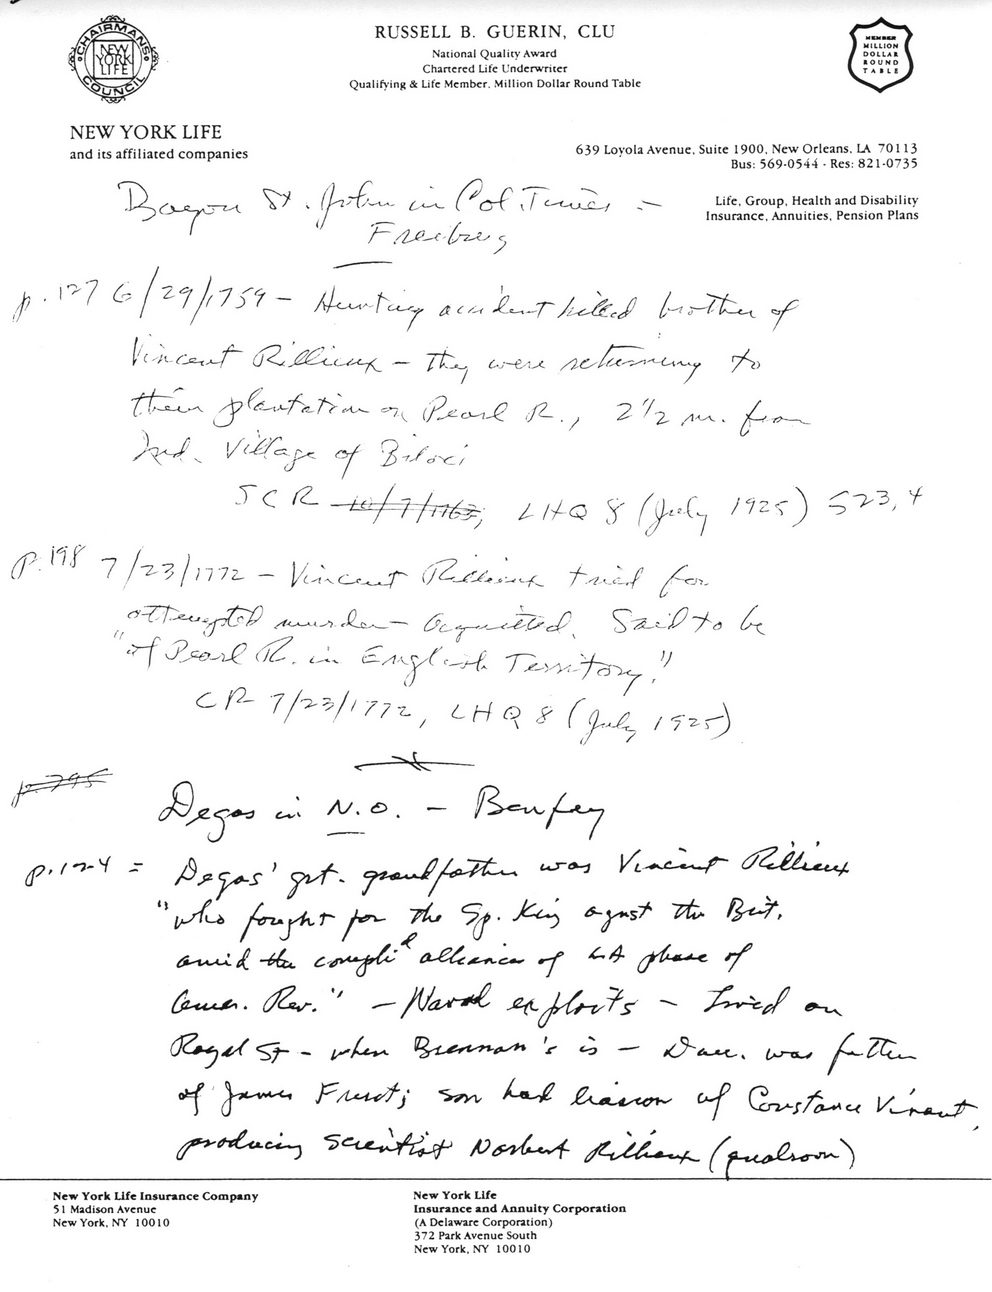 RUSSELL B. GUERIN, CLU
National Quality Award
Chartered Life Underwriter
Qualifying & Life Member, Million Dollar Round Table
CHAIRMANS COUNCIL
NEW YORK LIFE
MEMBER
MILLION
DOLLAR
ROUND
TABLE
NEW YORK LIFE
and its affiliated companies
639 Loyola Avenue, Suite 1900, New Orleans, LA 70113
Bus: 569-0544 - Res: 821-0735
Life, Group, Health and Disability
Insurance, Annuities, Pension Plans
Bayou St. John in Col. Times -
Freiberg
p.127 6/29/1759 - Hunting accident killed brother of
Vincent Rillieux - they were returning to
their plantation on Pearl R., 2 1/2 m. from
Ind. Village of Biloxi
SCR 10/7/1763, LHQ 8 (July 1925) 523,4
p.198 7/23/1772 - Vincent Rillieux tried for
attempted murder - Acquitted. Said to be
"of Pearl R. in English Territory."
CR 7/23/1772, LHQ 8 (July 1925)
p. 795
Degas in N.O. - Benfey
p.124 = Degas' grt. grandfather was Vincent Rillieux
"who fought for the Sp. King agnst the Brit.
amid the compli'd alliances of LA phase of
Amer. Rev." - Naval exploits - Lived on
Royal St - when Brennan's is - was father
of James Freret; son had liason w/ Constance Vivant,
producing scientist Norbert Rillieux (quadroon)
New York Life Insurance Company
51 Madison Avenue
New York, NY 10010
New York Life
Insurance and Annuity Corporation
(A Delaware Corporation)
372 Park Avenue South
New York, NY 10010